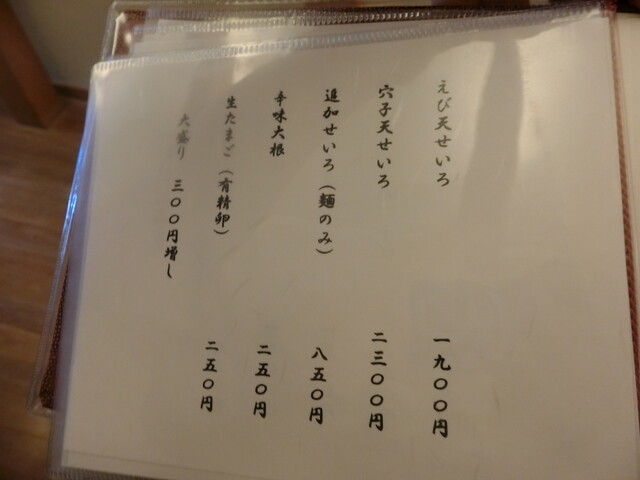 えび天せいろ 一九〇〇円
穴子天せいろ 二三〇〇円
追加せいろ（麺のみ） 八五〇円
辛味大根 二五〇円
生たまご（有精卵） 二五〇円
大盛り 三〇〇円増し